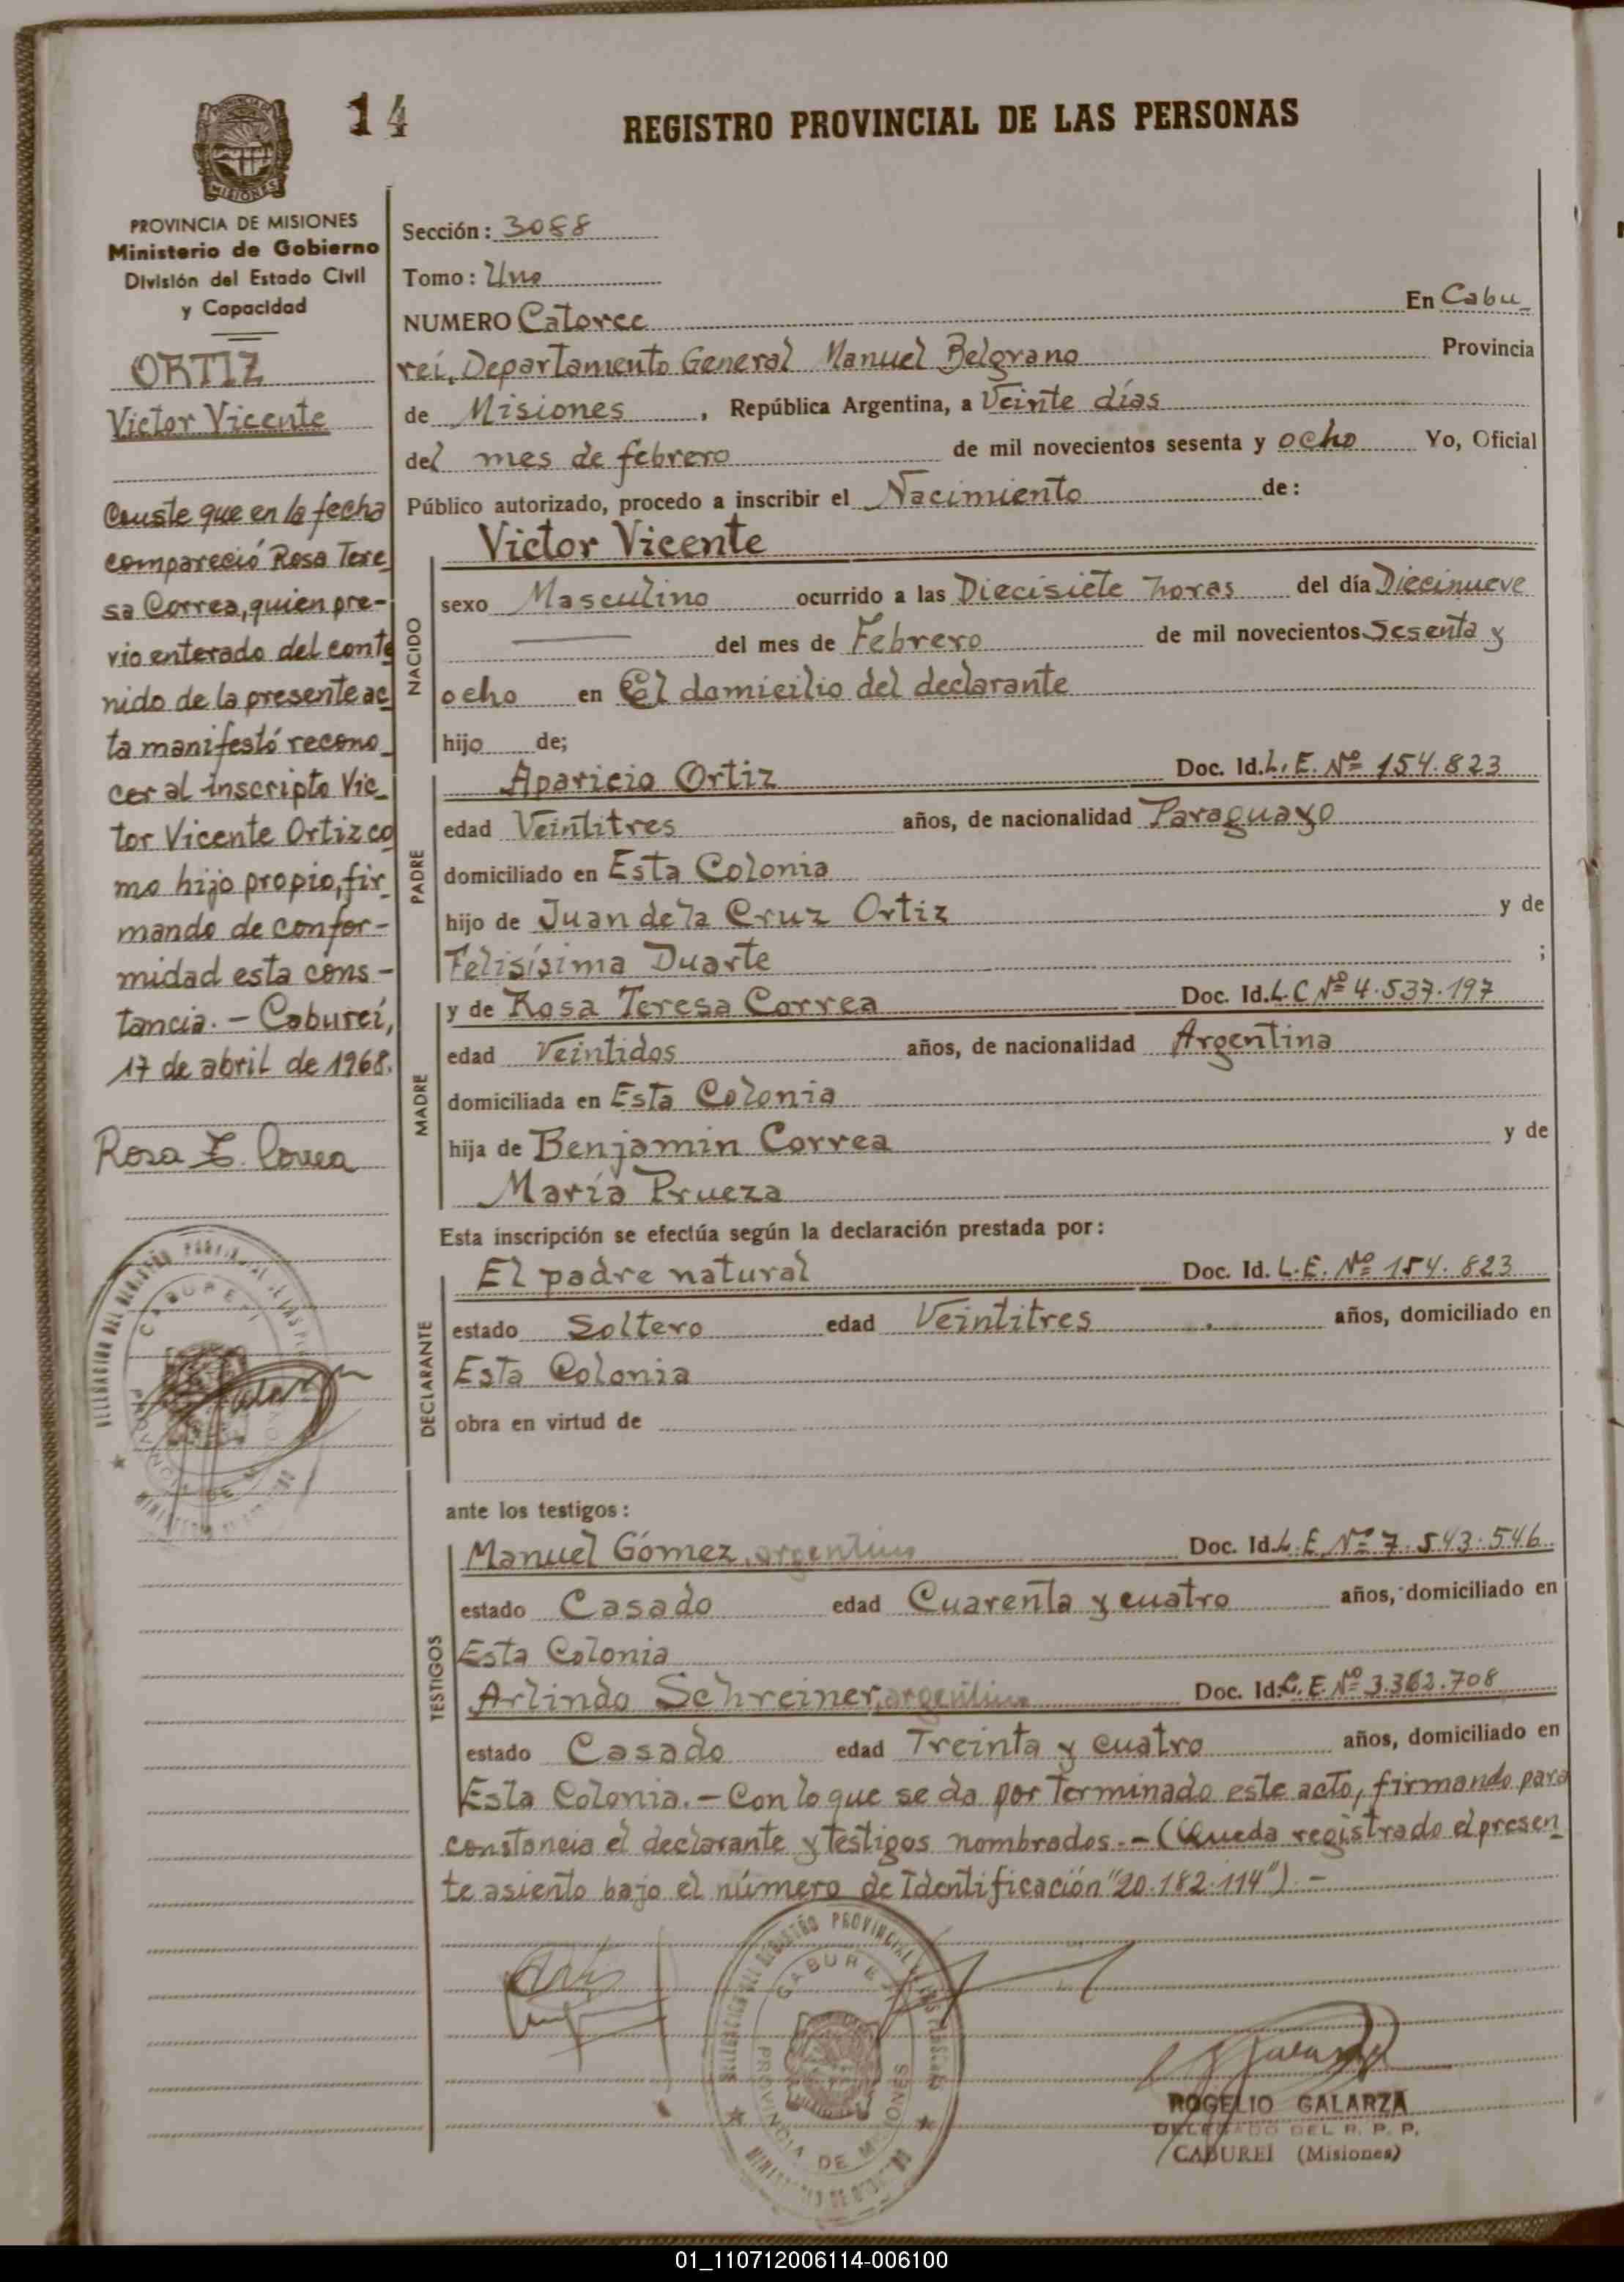 14
REGISTRO PROVINCIAL DE LAS PERSONAS
MISIONES
PROVINCIA DE MISIONES
Ministerio de Gobierno
División del Estado Civil
y Capacidad
ORTIZ
Victor Vicente
Conste que en la fecha
compareció Rosa Tere
sa Correa, quien pre-
vio enterado del conte
nido de la presente ac
ta manifestó recono_
cer al inscripto Vic_
tor Vicente Ortiz co
mo hijo propio, fir_
mando de confor-
midad esta cons-
tancia. - Caburei,
17 de abril de 1968.
Rosa T. Correa
Sección: 3088
Tomo: Uno
NUMERO Catorce En Cabu_
reí, Departamento General Manuel Belgrano Provincia
de Misiones, República Argentina, a Veinte días
del mes de febrero de mil novecientos sesenta y ocho Yo, Oficial
Público autorizado, procedo a inscribir el Nacimiento de:
Victor Vicente
NACIDO
sexo Masculino ocurrido a las Diecisiete horas del día Diecinueve
del mes de Febrero de mil novecientos Sesenta y
ocho en El domicilio del declarante
hijo de;
PADRE
Aparicio Ortiz Doc. Id. L. E. Nº 154.823
edad Veintitres años, de nacionalidad Paraguayo
domiciliado en Esta Colonia
hijo de Juan de la Cruz Ortiz y de
Felisísima Duarte ;
MADRE
y de Rosa Teresa Correa Doc. Id. L.C Nº 4.537.197
edad Veintidos años, de nacionalidad Argentina
domiciliada en Esta Colonia
hija de Benjamin Correa y de
María Prueza
Esta inscripción se efectúa según la declaración prestada por:
DECLARANTE
El padre natural Doc. Id. L.E. Nº 154.823
estado Soltero edad Veintitres años, domiciliado en
Esta Colonia
obra en virtud de
ante los testigos:
TESTIGOS
Manuel Gómez, argentino Doc. Id. L.E. Nº 7.543.546
estado Casado edad Cuarenta y cuatro años, domiciliado en
Esta Colonia
Arlindo Schreiner, argentino Doc. Id. L.E. Nº 3.362.708
estado Casado edad Treinta y cuatro años, domiciliado en
Esta Colonia. - Con lo que se da por terminado este acto, firmando para
constancia el declarante y testigos nombrados. - (Queda registrado el presen_
te asiento bajo el número de Identificación "20.182.114"). -
CABUREI
PROVINCIA DE MISIONES
ROGELIO GALARZA
DELEGADO DEL R. P. P.
CABUREI (Misiones)
01_110712006114-006100